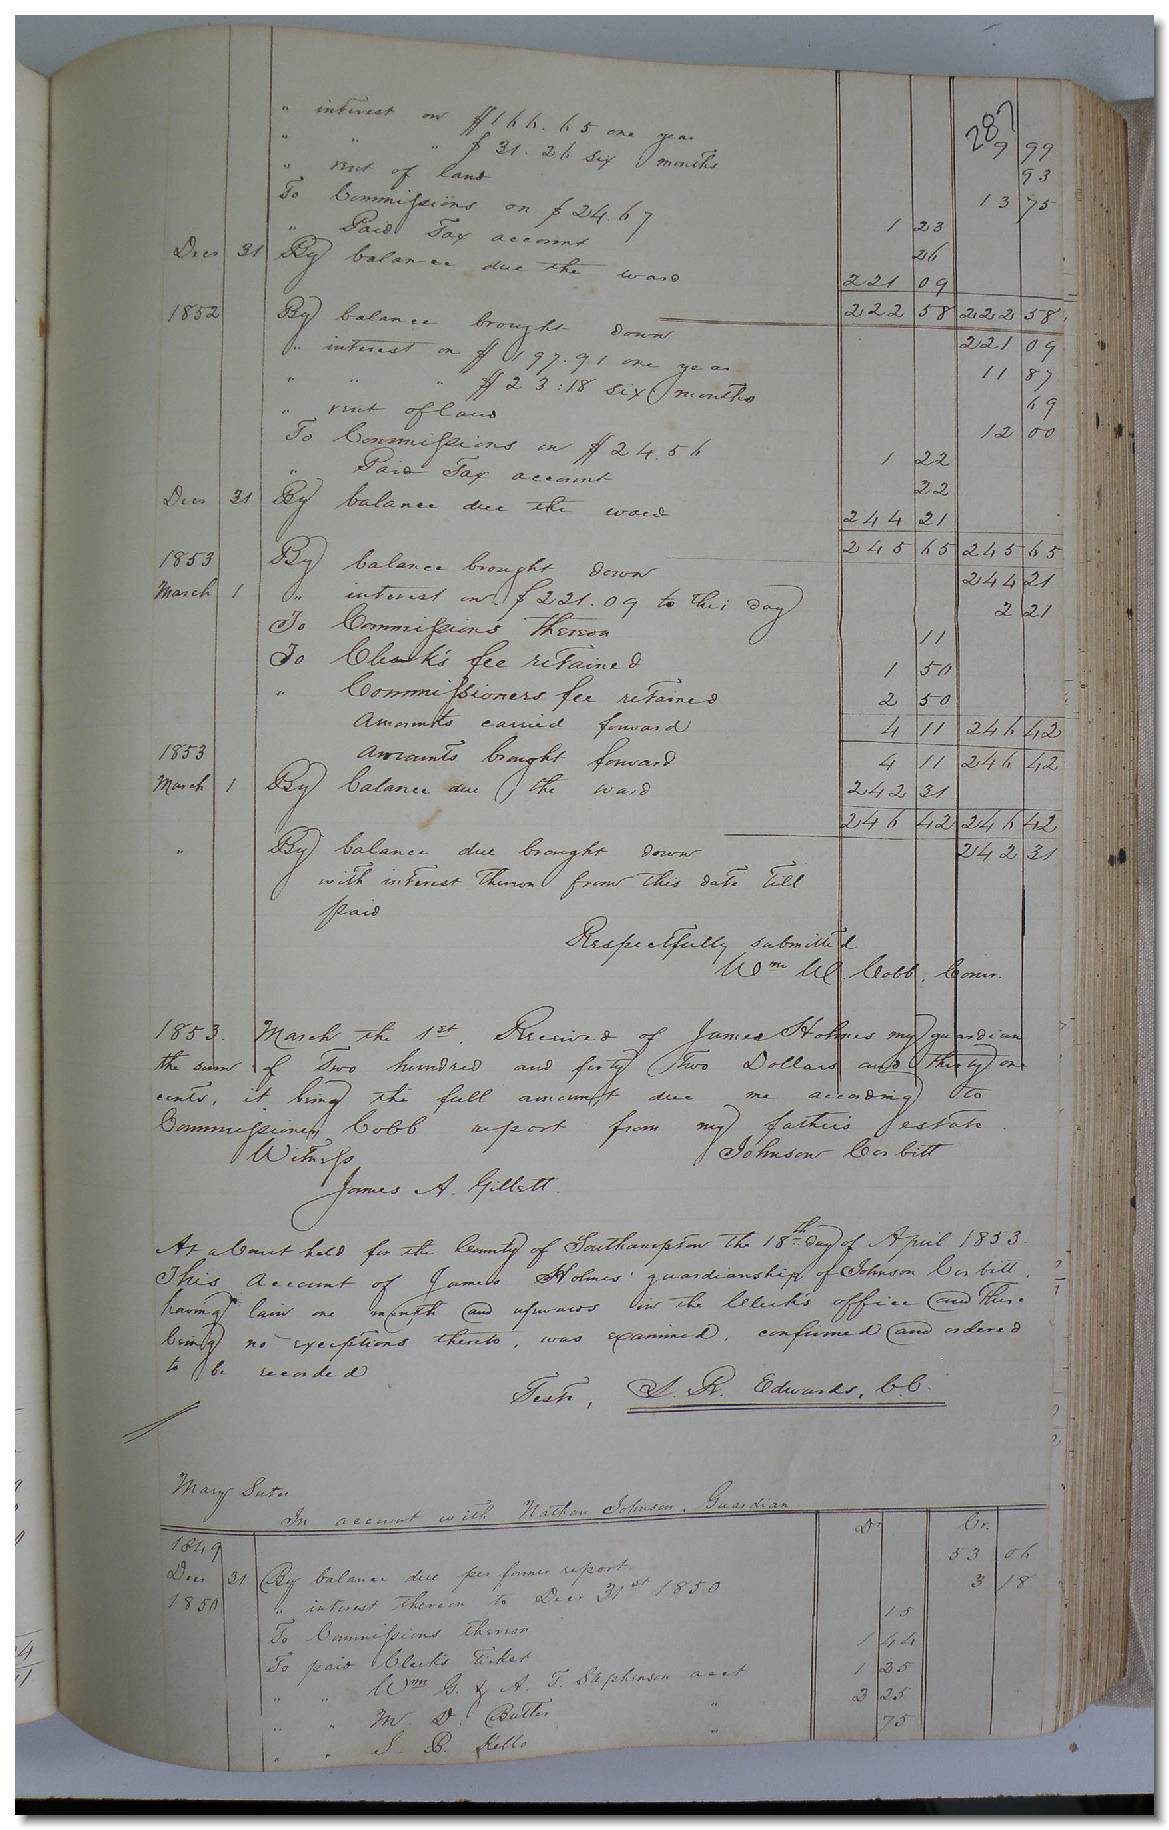 287
" interest on $166.65 one year 9 99
" " " $31.26 six months 93
" rent of land 13 75
To Commissions on $24.67 1 23
" Paid Tax account 26
Decr 31 By balance due the ward 221 09
222 58 222 58
1852 By balance brought down 221 09
" interest on $197.91 one year 11 87
" " " $23.18 six months 69
" rent of land 12 00
To Commissions on $24.56 1 22
" Paid Tax account 22
Decr 31 By balance due the ward 244 21
245 65 245 65
1853 By balance brought down 244 21
March 1 " interest on $221.09 to this day 2 21
To Commissions thereon 11
To Clerk's fee retained 1 50
" Commissioners fee retained 2 50
Amounts carried forward 4 11 246 42
1853 Amounts brought forward 4 11 246 42
March 1 By balance due the ward 242 31
246 42 246 42
" By balance due brought down 242 31
with interest thereon from this date till
paid
Respectfully submitted
Wm W. Cobb, Comr.
1853. March the 1st. Received of James Holmes my guardian
the sum of Two hundred and forty Two Dollars and thirty one
cents, it being the full amount due me according to
Commissioner Cobb report from my father's estate.
Witness Johnson Corbitt
James A. Gillett
At a Court held for the County of Southampton the 18th day of April 1853
This account of James Holmes' guardianship of Johnson Corbitt,
having lain one month and upwards in the Clerk's office and there
being no exceptions thereto, was examined, confirmed and ordered
to be recorded
Teste, L. R. Edwards, C.C.
Mary Suter
In account with Nathan Johnson, Guardian
1849 Dr Cr.
Decr 31 By balance due per former report 53 06
1850 " interest thereon to Decr 31st 1850 3 18
To Commissions thereon 15
To paid Clerk's Ticket 1 44
" " Wm G. & A. T. Stephenson acct 1 25
" " M. D. Butler " 2 25
" " S. B. Kello " 75